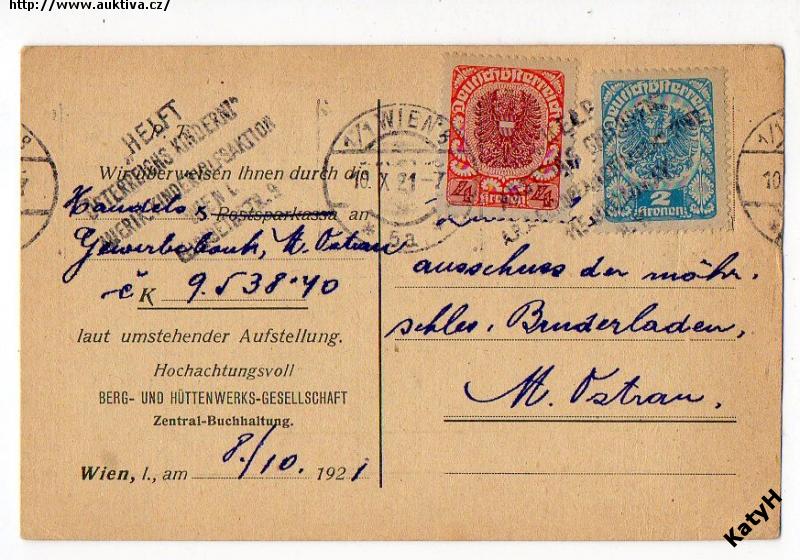 http://www.auktiva.cz/
HELFT
ÖSTERREICHS KINDERN!
AMERIK. KINDERHILFSAKTION
WIEN I.
1/1 WIEN
10. X. 21-7
* 5a
Deutschösterreich
4 4
Kronen
Deutschösterreich
2
Kronen
Wir überweisen Ihnen durch die
Handels s Postsparkassa an
Gewerbebank, M. Ostrau
č K 9.538·40
laut umstehender Aufstellung.
Hochachtungsvoll
BERG- UND HÜTTENWERKS-GESELLSCHAFT
Zentral-Buchhaltung.
Wien, I., am 8./10. 1921
ausschuss der mähr.
schles. Bruderladen,
M. Ostrau.
KatyH